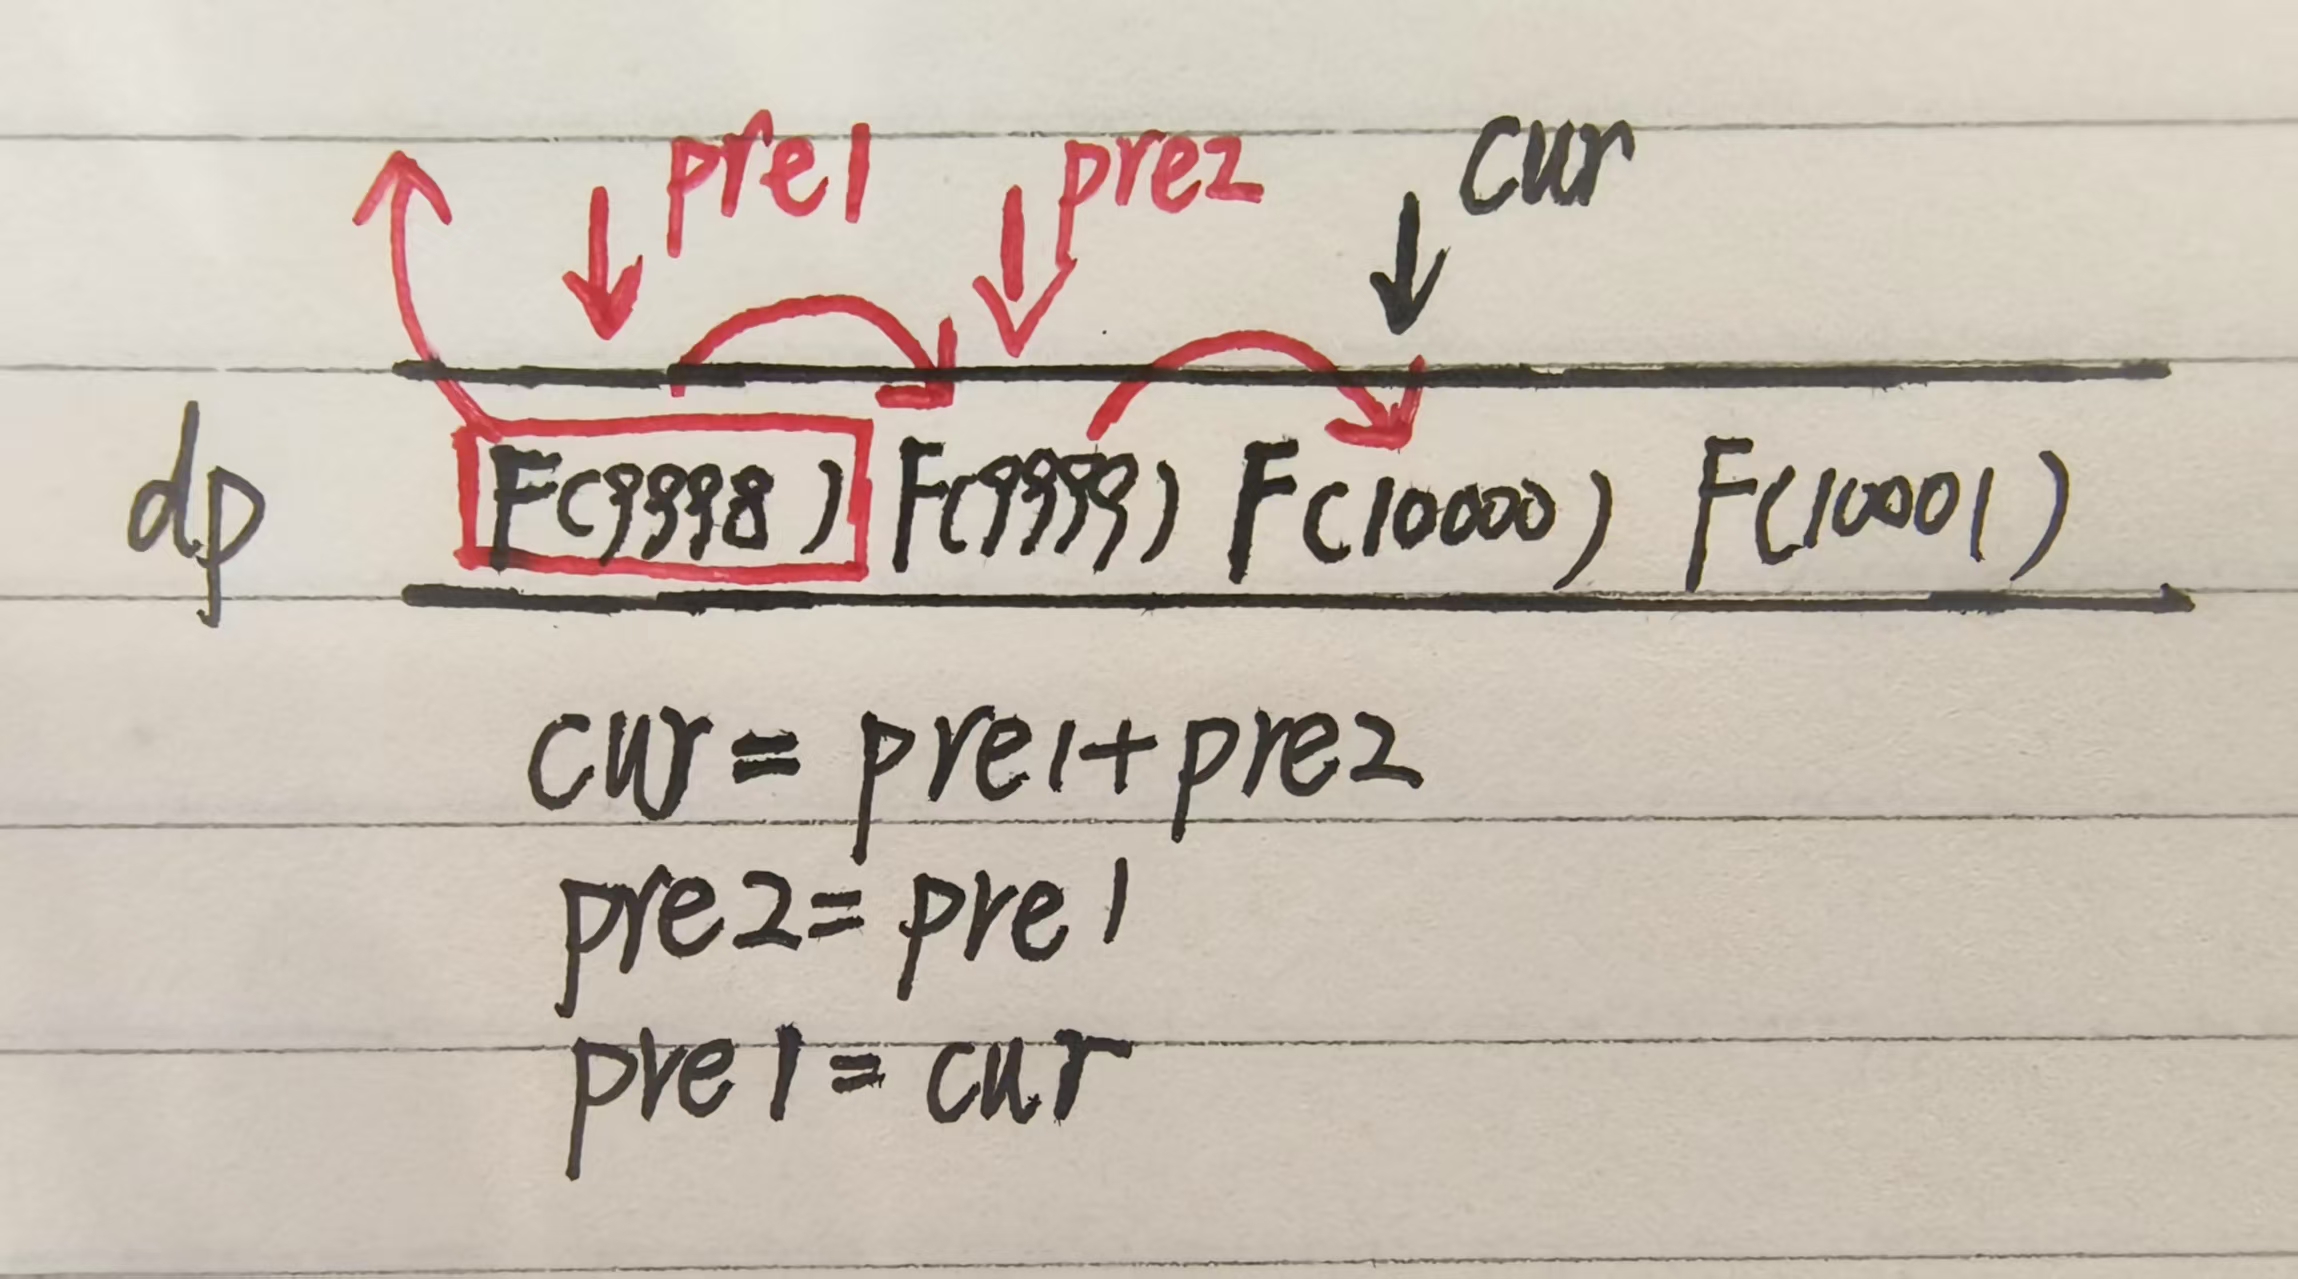 pre1 pre2 cur
dp F(9998) F(9999) F(10000) F(10001)
cur = pre1+pre2
pre2=pre1
pre1=cur